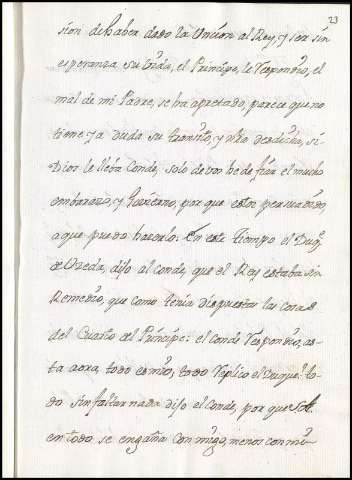 23
sion de haber dado la Union al Rey, y ser sin
esperanza su vida, el Principe, le respondio, el
mal de mi Padre, se ha apretado, parece que no
tiene ya duda su transito, y nra desdicha, si
Dios le lleba Conde, solo de vos he de fiar el mucho
embarazo, y Govierno, por que estoy persuadido
a que puedo hacerlo: En este tiempo el Duq.
de Uzeda, dijo al conde, que el Rey estaba sin
Remedio, que como tenia dispuestas las cosas
del Cuarto del Principe: el conde respondio, as-
ta aora, todo es mio; todo? replico el Duque: to-
do sin faltar nada dijo el conde, por que S.A.
en todo se engaña conmigo, menos con mi